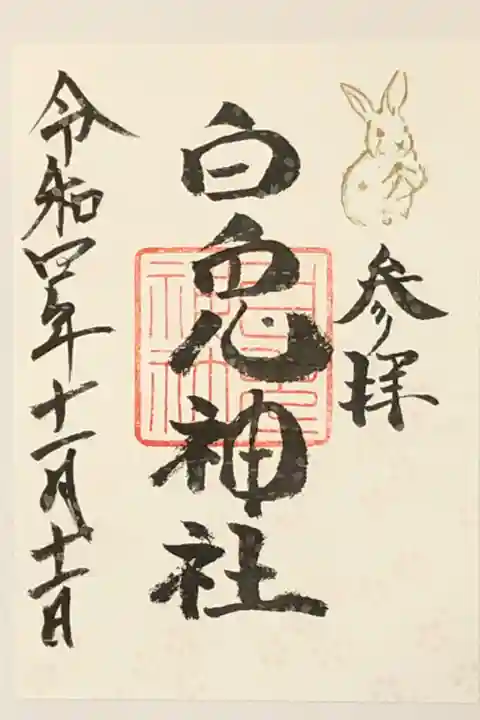 参拝
白兎神社
令和四年十一月十二日